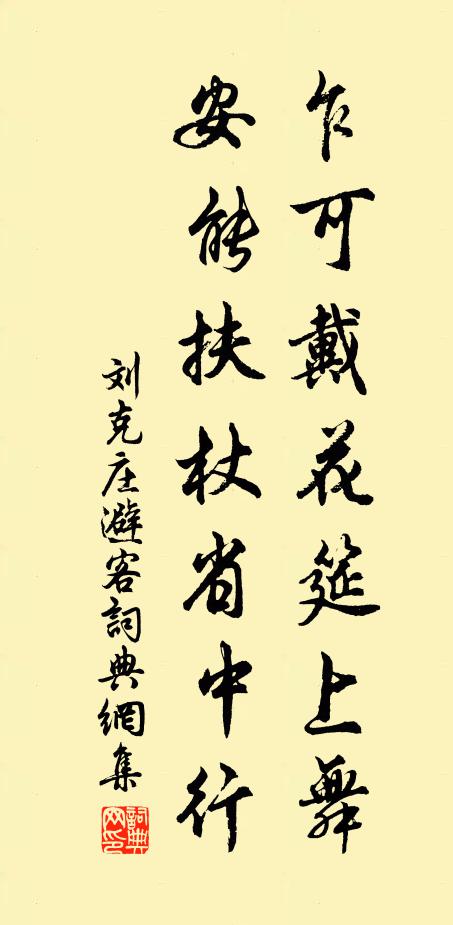 乍可戴花筵上舞
安能扶杖省中行
刘克庄避客詞典網集
詞典网印